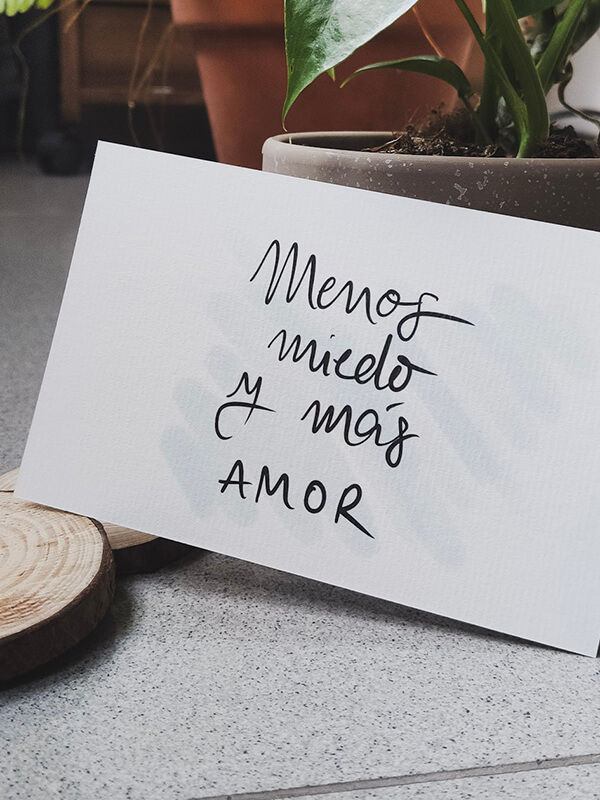 Menos
miedo
y más
AMOR